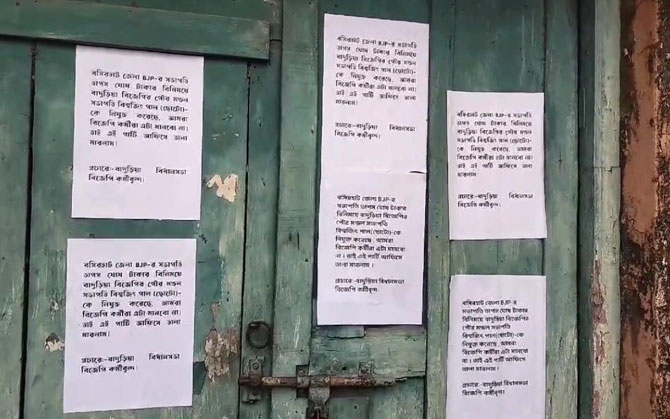 বসিরহাট জেলা BJP-র সভাপতি
তাপস ঘোষ টাকার বিনিময়ে
বাদুড়িয়া বিজেপির পৌর মন্ডল
সভাপতি বিশ্বজিৎ পাল (ছোটো)-
কে নিযুক্ত করেছে, আমরা
বিজেপি কর্মীরা এটা মানবো না।
তাই এই পার্টি আফিসে তালা
মারলাম।
প্রচারে:-বাদুড়িয়া বিধানসভা
বিজেপি কর্মীবৃন্দ।
বসিরহাট জেলা BJP-র সভাপতি
তাপস ঘোষ টাকার বিনিময়ে
বাদুড়িয়া বিজেপির পৌর মন্ডল
সভাপতি বিশ্বজিৎ পাল (ছোটো)-
কে নিযুক্ত করেছে, আমরা
বিজেপি কর্মীরা এটা মানবো না।
তাই এই পার্টি আফিসে তালা
মারলাম।
প্রচারে:-বাদুড়িয়া বিধানসভা
বিজেপি কর্মীবৃন্দ।
বসিরহাট জেলা BJP-র সভাপতি
তাপস ঘোষ টাকার বিনিময়ে
বাদুড়িয়া বিজেপির পৌর মন্ডল
সভাপতি বিশ্বজিৎ পাল (ছোটো)-
কে নিযুক্ত করেছে, আমরা
বিজেপি কর্মীরা এটা মানবো না।
তাই এই পার্টি আফিসে তালা
মারলাম।
প্রচারে:-বাদুড়িয়া বিধানসভা
বিজেপি কর্মীবৃন্দ।
বসিরহাট জেলা BJP-র
সভাপতি তাপস ঘোষ টাকার
বিনিময়ে বাদুড়িয়া বিজেপির
পৌর মন্ডল সভাপতি
বিশ্বজিৎ পাল(ছোটো)-কে
নিযুক্ত করেছে, আমরা
বিজেপি কর্মীরা এটা মানবো
না। তাই এই পার্টি আফিসে
তালা মারলাম।
প্রচারে:-বাদুড়িয়া বিধানসভা
বিজেপি কর্মীবৃন্দ।
বসিরহাট জেলা BJP-র সভাপতি
তাপস ঘোষ টাকার বিনিময়ে
বাদুড়িয়া বিজেপির পৌর মন্ডল
সভাপতি বিশ্বজিৎ পাল (ছোটো)-
কে নিযুক্ত করেছে, আমরা
বিজেপি কর্মীরা এটা মানবো না।
তাই এই পার্টি আফিসে তালা
মারলাম।
প্রচারে:-বাদুড়িয়া বিধানসভা
বিজেপি কর্মীবৃন্দ।
বসিরহাট জেলা BJP-র
সভাপতি তাপস ঘোষ টাকার
বিনিময়ে বাদুড়িয়া বিজেপির
পৌর মন্ডল সভাপতি
বিশ্বজিৎ পাল(ছোটো)-কে
নিযুক্ত করেছে, আমরা
বিজেপি কর্মীরা এটা মানবো
না। তাই এই পার্টি আফিসে
তালা মারলাম।
প্রচারে:-বাদুড়িয়া বিধানসভা
বিজেপি কর্মীবৃন্দ।